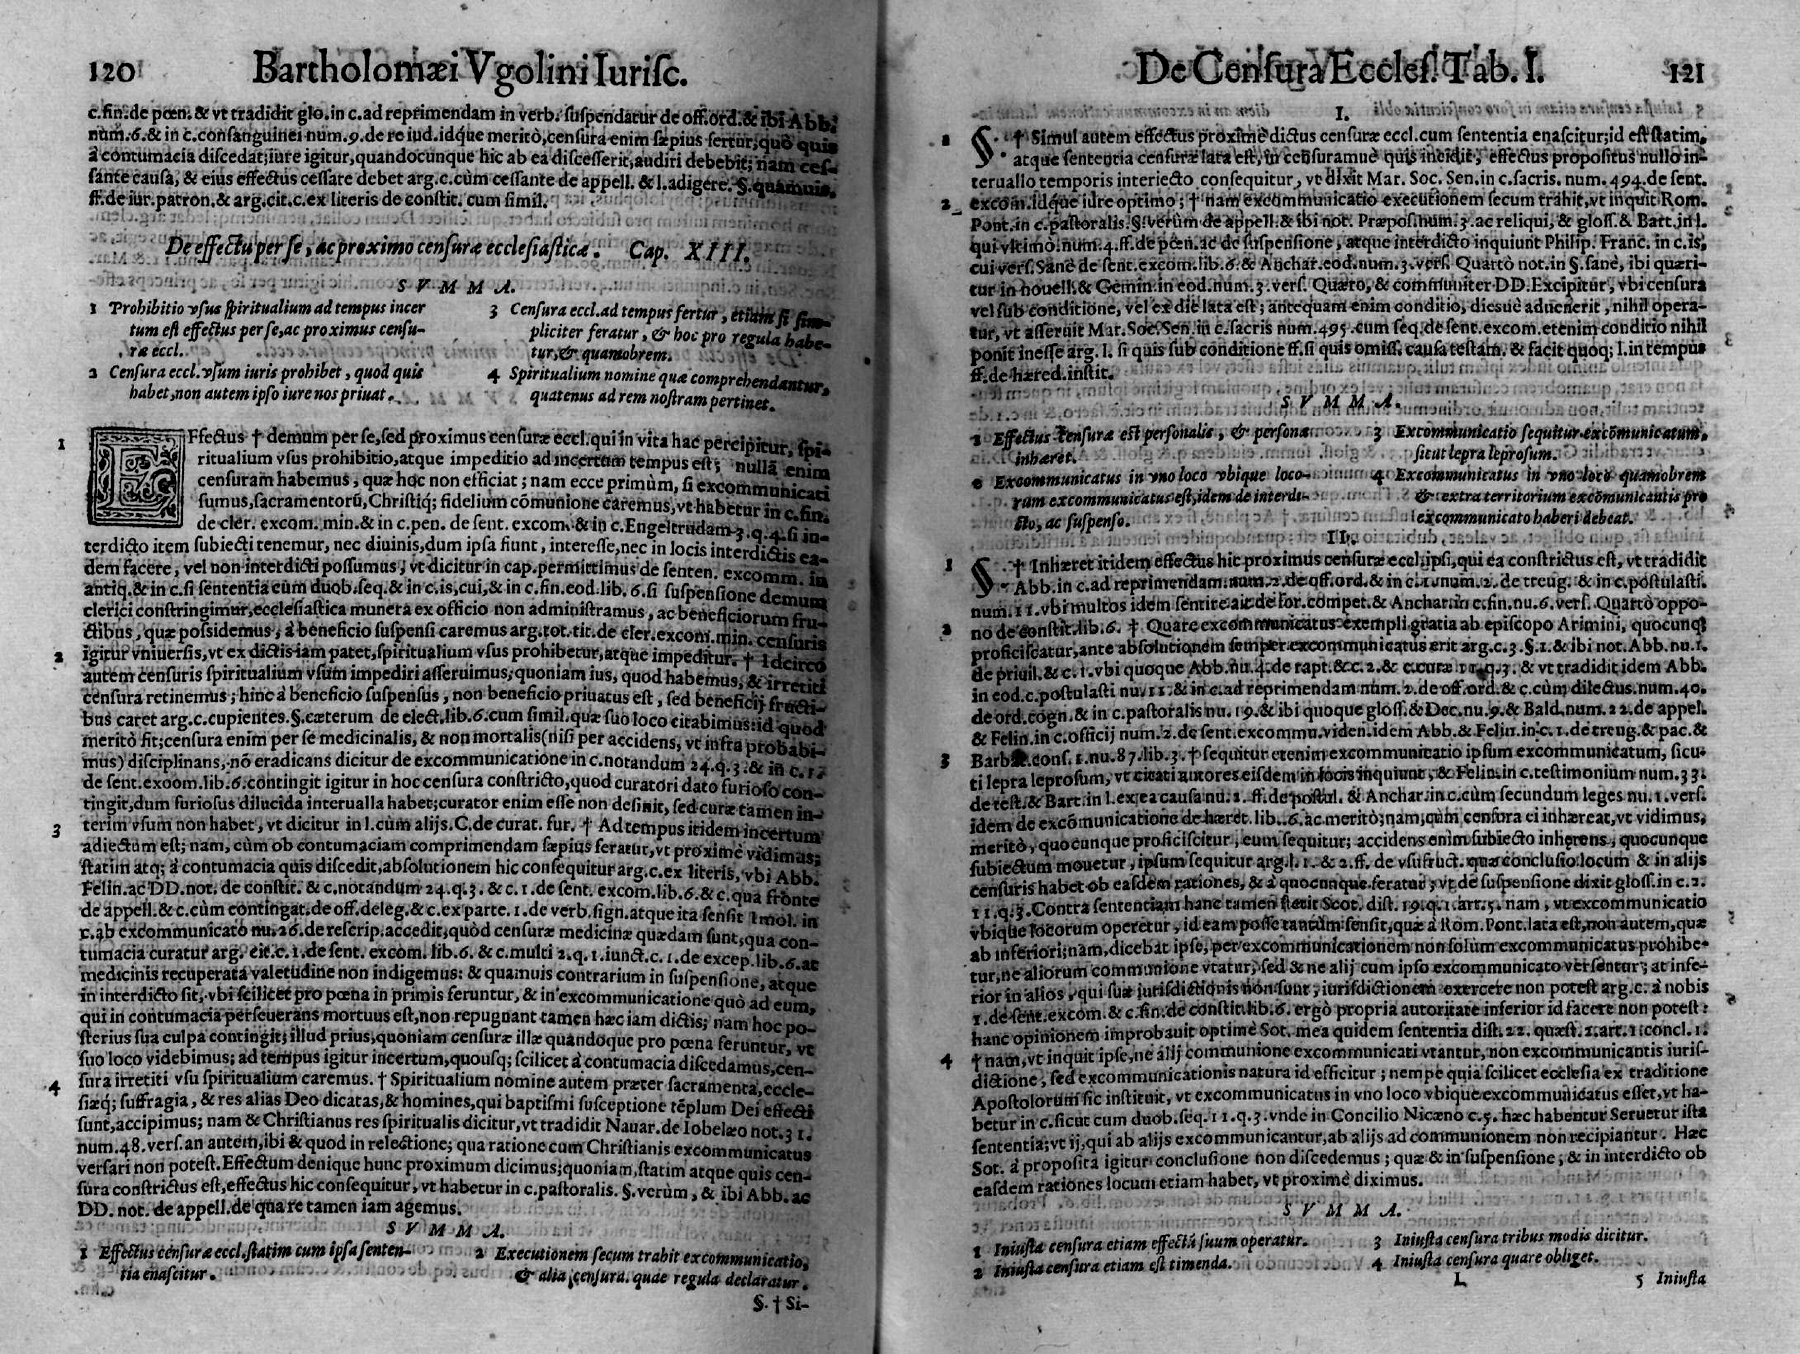 120 Bartholomæi Vgolini Iurisc.
c.fin.de pœn.& vt tradidit glo.in c.ad reprimendam in verb. suspendatur de off.ord.& ibi Abb.
num.6.& in c.consanguinei num.9.de re iud.idq́ue meritò,censura enim sæpius fertur,quo quis
à contumacia discedat;iure igitur,quandocunque hic ab ea discesserit,audiri debebit; nam ces-
sante causa, & eius effectus cessare debet arg.c.cùm cessante de appell. & l.adigere. §.quamuis,
ff.de iur.patron.& arg.cit.c.ex literis de constit. cum simil.
De effectu per se, ac proximo censuræ ecclesiasticæ. Cap. XIII.
S V M M A.
1 Prohibitio vsus spiritualium ad tempus incer
tum est effectus per se,ac proximus censu-
ræ eccl.
2 Censura eccl.vsum iuris prohibet, quod quis
habet,non autem ipso iure nos priuat.
3 Censura eccl.ad tempus fertur, etiam si sim-
pliciter feratur, & hoc pro regula habe-
tur,& quamobrem.
4 Spiritualium nomine quæ comprehendantur,
quatenus ad rem nostram pertinet.
1 EFfectus † demum per se,sed proximus censuræ eccl.qui in vita hac percipitur, spi-
ritualium vsus prohibitio,atque impeditio ad incertum tempus est; nullā enim
censuram habemus, quæ hoc non efficiat; nam ecce primùm, si excommunicati
sumus,sacramentorū,Christiq́; fidelium cōmunione caremus,vt habetur in c.fin.
de cler. excom. min.& in c.pen. de sent. excom. & in c.Engeltrudam 3.q.4.si in-
terdicto item subiecti tenemur, nec diuinis,dum ipsa fiunt, interesse,nec in locis interdictis ea-
dem facere, vel non interdicti possumus, vt dicitur in cap.permittimus de senten. excomm. in
antiq.& in c.si sententia cùm duob.seq.& in c.is,cui,& in c.fin.eod.lib.6.si suspensione demum
clerici constringimur,ecclesiastica munera ex officio non administramus, ac beneficiorum fru-
ctibus, quæ possidemus, à beneficio suspensi caremus arg.tot.tit.de cler.excom.min. censuris
2 igitur vniuersis,vt ex dictis iam patet,spiritualium vsus prohibetur,atque impeditur. † Idcirco
autem censuris spiritualium vsum impediri asseruimus;quoniam ius, quod habemus, & irretiti
censura retinemus; hinc à beneficio suspensus, non beneficio priuatus est, sed beneficij fructi-
bus caret arg.c.cupientes.§.cæterum de elect.lib.6.cum simil.quæ suo loco citabimus:id quod
meritò fit;censura enim per se medicinalis, & non mortalis(nisi per accidens, vt infra probabi-
mus) disciplinans, nō eradicans dicitur de excommunicatione in c.notandum 24.q.3.& in c.1.
de sent.excom.lib.6.contingit igitur in hoc censura constricto,quod curatori dato furioso con-
tingit,dum furiosus dilucida interualla habet;curator enim esse non desinit, sed curæ tamen in-
3 terim vsum non habet, vt dicitur in l.cùm alijs.C.de curat. fur. † Ad tempus itidem incertum
adiectum est; nam, cùm ob contumaciam comprimendam sæpius feratur,vt proximè vidimus;
statim atq; à contumacia quis discedit,absolutionem hic consequitur arg.c.ex literis, vbi Abb.
Felin.ac DD.not. de constit. & c.notandum 24.q.3. & c.1.de sent. excom.lib.6.& c.qua fronte
de appell.& c.cùm contingat.de off.deleg.& c.ex parte.1.de verb.sign.atque ita sensit Imol. in
c.ab excommunicato nu.26.de rescrip.accedit,quòd censuræ medicinæ quædam sunt,qua con-
tumacia curatur arg. cit.c.1.de sent. excom. lib.6. & c.multi 2.q.1.iunct.c.1.de excep.lib.6.at
medicinis recuperata valetudine non indigemus: & quamuis contrarium in suspensione, atque
in interdicto sit, vbi scilicet pro pœna in primis feruntur, & in excommunicatione quò ad eum,
qui in contumacia perseuerans mortuus est,non repugnant tamen hæc iam dictis; nam hoc po-
sterius sua culpa contingit; illud prius,quoniam censuræ illæ quandoque pro pœna feruntur, vt
suo loco videbimus; ad tempus igitur incertum,quousq; scilicet à contumacia discedamus,cen-
4 sura irretiti vsu spiritualium caremus. † Spiritualium nomine autem præter sacramenta,eccle-
siæq; suffragia, & res alias Deo dicatas,& homines,qui baptismi susceptione tēplum Dei effecti
sunt,accipimus; nam & Christianus res spiritualis dicitur,vt tradidit Nauar.de Iobelæo not.31.
num.48.vers.an autem,ibi & quod in relectione; qua ratione cum Christianis excommunicatus
versari non potest.Effectum denique hunc proximum dicimus;quoniam,statim atque quis cen-
sura constrictus est,effectus hic consequitur, vt habetur in c.pastoralis. §.verùm, & ibi Abb. ac
DD. not. de appell.de qua re tamen iam agemus.
S V M M A.
1 Effectus censuræ eccl.statim cum ipsa senten-
tia enascitur.
2 Executionem secum trahit excommunicatio,
& alia censura. quæ regula declaratur.
§. † Si-
De Censura Eccles. Tab. I. 121
I.
1 §. † Simul autem effectus proximè dictus censuræ eccl.cum sententia enascitur;id est statim,
atque sententia censuræ lata est, in censuramuè quis incidit, effectus propositus nullo in-
teruallo temporis interiecto consequitur, vt dixit Mar. Soc. Sen.in c.sacris. num. 494.de sent.
2 excom.idq́ue idre optimo; † nam excommunicatio executionem secum trahit,vt inquit Rom.
Pont.in c.pastoralis.§.verùm de appell.& ibi not. Præpos.num.3.ac reliqui, & gloss.& Bart.in l.
qui vltimò.num.4.ff.de pœn.ac de suspensione, atque interdicto inquiunt Philip. Franc. in c.is,
cui vers. Sanè de sent.excom.lib.6.& Anchar.eod.num.3.vers. Quartò not.in §.sanè, ibi quæri-
tur in nouell.& Gemin.in eod.num.3.vers. Quæro, & communiter DD.Excipitur, vbi censura
vel sub conditione, vel ex die lata est; antequam enim conditio, diesuè aduenerit, nihil opera-
tur, vt asseruit Mar.Soc.Sen.in c.sacris num.495.cum seq.de sent.excom.etenim conditio nihil
ponit inesse arg. l. si quis sub conditione ff.si quis omiss. causa testam. & facit quoq; l.in tempus
ff.de hæred.instit.
S V M M A.
1 Effectus censuræ est personalis, & personæ
inhæret.
2 Excommunicatus in vno loco vbique loco-
rum excommunicatus est,idem de interdi-
cto, ac suspenso.
3 Excommunicatio sequitur excōmunicatum,
sicut lepra leprosum.
4 Excommunicatus in vno loco quamobrem
& extra territorium excōmunicantis pro
excommunicato haberi debeat.
II.
1 §. † Inhæret itidem effectus hic proximus censuræ eccl.ipsi,qui ea constrictus est, vt tradidit
Abb.in c.ad reprimendam.num.2.de off.ord.& in c.1.num.2. de treug. & in c.postulasti.
num.11.vbi multos idem sentire ait de for.compet.& Anchar.in c.fin.nu.6.vers. Quartò oppo-
2 no de constit.lib.6. † Quare excommunicatus exempli gratia ab episcopo Arimini, quocunq;
proficiscatur,ante absolutionem semper excommunicatus erit arg.c.3.§.1.& ibi not.Abb.nu.1.
de priuil.& c.1.vbi quoque Abb.nu.4.de rapt.& c.2.& c.curæ 11.q.3. & vt tradidit idem Abb.
in eod.c.postulasti nu.11.& in c.ad reprimendam num.2.de off.ord.& c.cùm dilectus.num.40.
de ord.cogn.& in c.pastoralis nu.19.& ibi quoque gloss.& Dec.nu.9.& Bald.num.22.de appel.
& Felin.in c.officij num.2.de sent.excommu.viden.idem Abb.& Felin.in c.1.de treug.& pac.&
3 Barbat.cons.1.nu.87.lib.3. † sequitur etenim excommunicatio ipsum excommunicatum, sicu-
ti lepra leprosum, vt citati autores eisdem in locis inquiunt, & Felin.in c.testimonium num.33.
de test.& Bart.in l.ex ea causa nu.1. ff.de postul. & Anchar.in c.cùm secundum leges nu.1.vers.
idem de excōmunicatione de hæret.lib.6.ac meritò;nam,cùm censura ei inhæreat,vt vidimus,
meritò, quocunque proficiscitur, eum sequitur; accidens enim subiecto inhęrens, quocunque
subiectum mouetur, ipsum sequitur arg.l.1.& 2.ff. de vsufruct.quæ conclusio locum & in alijs
censuris habet ob easdem rationes, & à quocunque feratur; vt de suspensione dixit gloss.in c.2.
11.q.3.Contra sententiam hanc tamen stetit Scot. dist.19.q.1.art.5. nam, vt excommunicatio
vbique locorum operetur, id eam posse tantùm sensit,quæ à Rom.Pont.lata est,non autem,quæ
ab inferiori;nam,dicebat ipse, per excommunicationem non solùm excommunicatus prohibe-
tur,ne aliorum communione vtatur, sed & ne alij cum ipso excommunicato versentur; at infe-
rior in alios, qui suæ iurisdictionis non sunt, iurisdictionem exercere non potest arg.c.à nobis
1.de sent.excom.& c.fin.de constit.lib.6. ergò propria autoritate inferior id facere non potest:
hanc opinionem improbauit optimè Sot. mea quidem sententia dist.22. quæst.1.art.1.concl.1.
4 † nam, vt inquit ipse,ne alij communione excommunicati vtantur,non excommunicantis iuris-
dictione, sed excommunicationis natura id efficitur; nempe quia scilicet ecclesia ex traditione
Apostolorum sic instituit, vt excommunicatus in vno loco vbique excommunicatus esset,vt ha-
betur in c.sicut cum duob.seq.11.q.3.vnde in Concilio Nicæno c.5. hæc habentur Seruetur ista
sententia;vt ij,qui ab alijs excommunicantur,ab alijs ad communionem non recipiantur. Hæc
Sot. à proposita igitur conclusione non discedemus; quæ & in suspensione, & in interdicto ob
easdem rationes locum etiam habet, vt proximè diximus.
S V M M A.
1 Iniusta censura etiam effectū suum operatur.
2 Iniusta censura etiam est timenda.
3 Iniusta censura tribus modis dicitur.
4 Iniusta censura quare obliget.
L 5 Iniusta